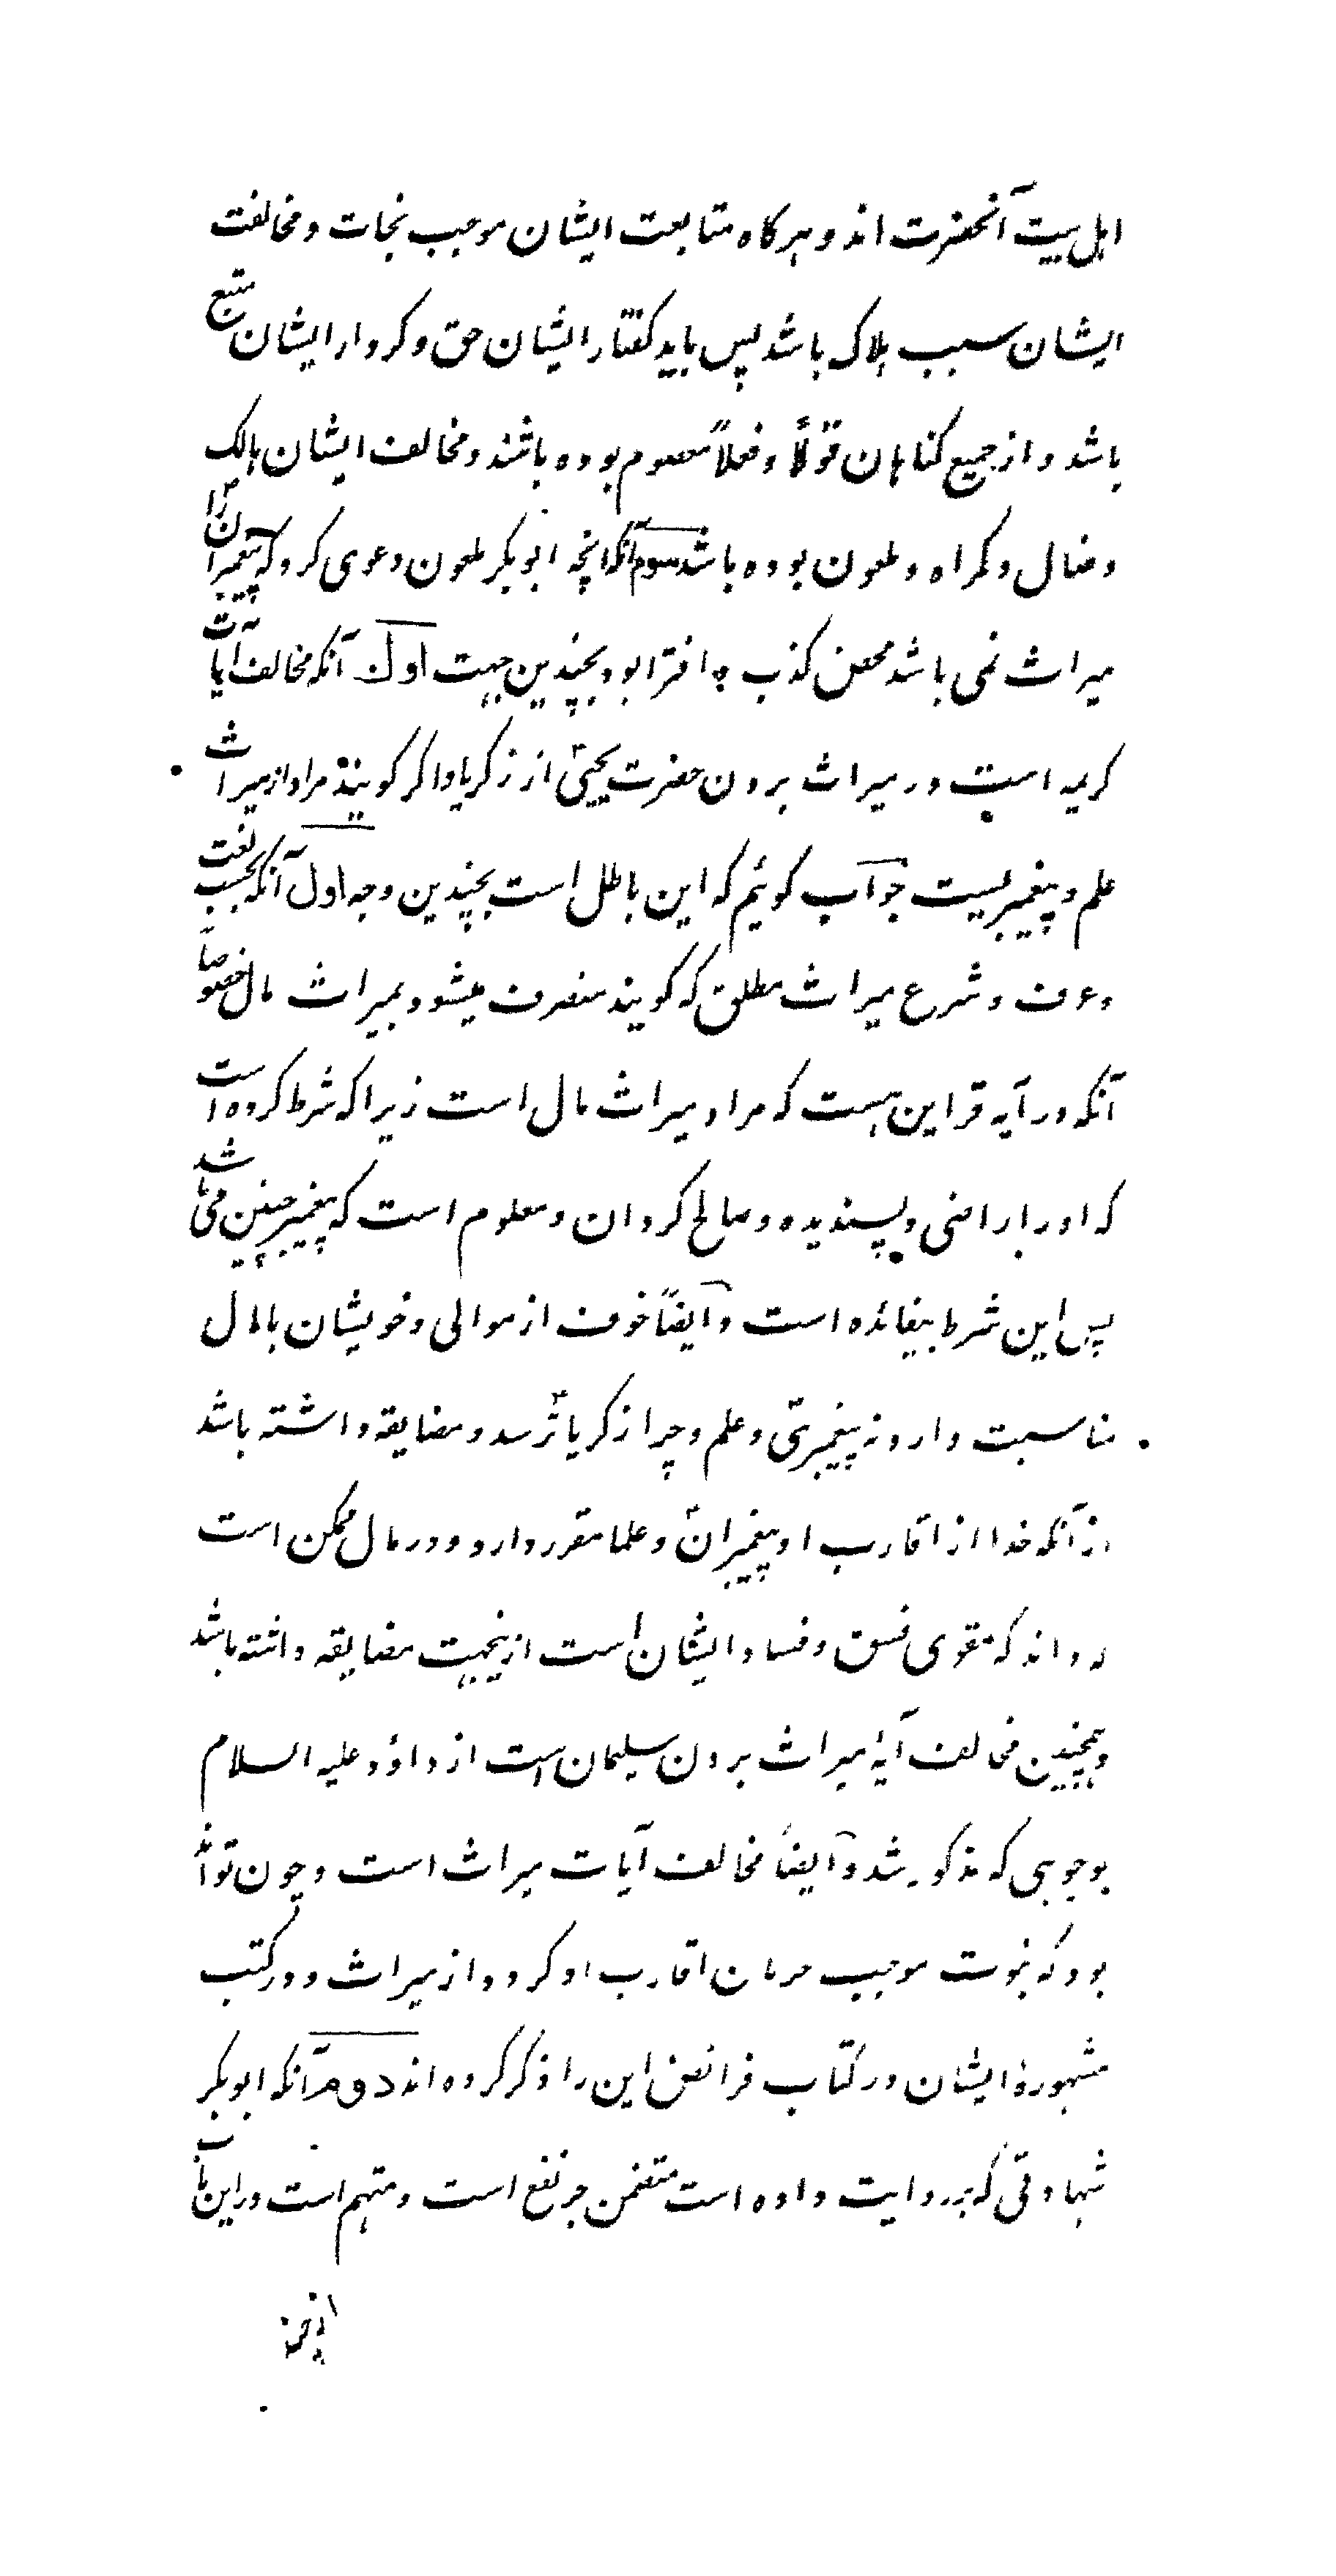 اهل بیت آنحضرت اند و هرکاه متابعت ایشان موجب نجات و مخالفت
ایشان سبب هلاک باشد پس باید کفتار ایشان حق و کردار ایشان متبع
باشد و از جمیع کناهان قولاً و فعلاً معصوم بوده باشند و مخالف ایشان هالک
و ضال و کمراه و ملعون بوده باشد سوم آنکه انچه ابوبکر ملعون دعوی کرد که پیغمبران را
میراث نمی باشد محض کذب و افترا بود بچندین جهت اول آنکه مخالف آیات
کریمه است در میراث بردن حضرت یحییٰ از زکریا و اکر کویند مراد از میراث
علم و پیغمبریست جواب کوئیم که این باطل است بچندین وجه اول آنکه بحسب لغت
و عرف و شرع میراث مطلق که کویند منصرف میشود بمیراث مال خصوصاً
آنکه در آیه قراین هست که مراد میراث مال است زیرا که شرط کرده است
که او را راضی و پسندیده و صالح کردان و معلوم است که پیغمبر چنین می باشد
پس این شرط بیفائده است و ایضاً خوف از موالی و خویشان بامال
مناسبت دارد نه پیغمبری و علم و چرا زکریا ترسد و مضایقه داشته باشد
از آنکه خدا از اقارب او پیغمبران و علما مقرر دارد و در مال ممکن است
که داند که مقوی فسق و فساد ایشان است ازینجهت مضایقه داشته باشد
و همچنین مخالف آیهٔ میراث بردن سلیمان است از داؤد علیه السلام
بوجوهی که مذکور شد و ایضاً مخالف آیات میراث است و چون تواند
بود که نبوت موجب حرمان اقارب او کردد از میراث و در کتب
مشهورهٔ ایشان در کتاب فرائض این را ذکر کرده اند دوم آنکه ابوبکر
شهادتی که بر روایت داده است متضمن جر نفع است و متهم است در این باب